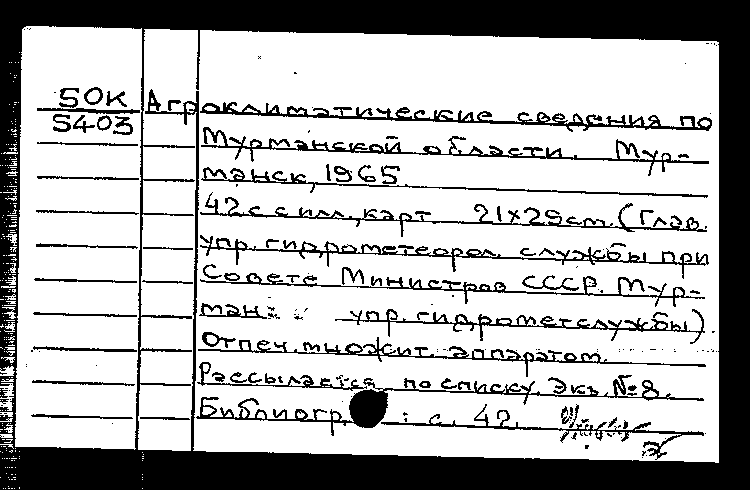 50К Агроклиматические сведения по
5403
Мурманской области. Мур-
манск, 1965.
42 с с илл., карт. 21×29 см. (Глав.
упр. гидрометеорол. службы при
Совете Министров СССР. Мур-
ман. упр. гидрометслужбы).
Отпеч. множит. аппаратом.
Рассылается по списку. Экз. №8.
Библиогр.: с. 42.